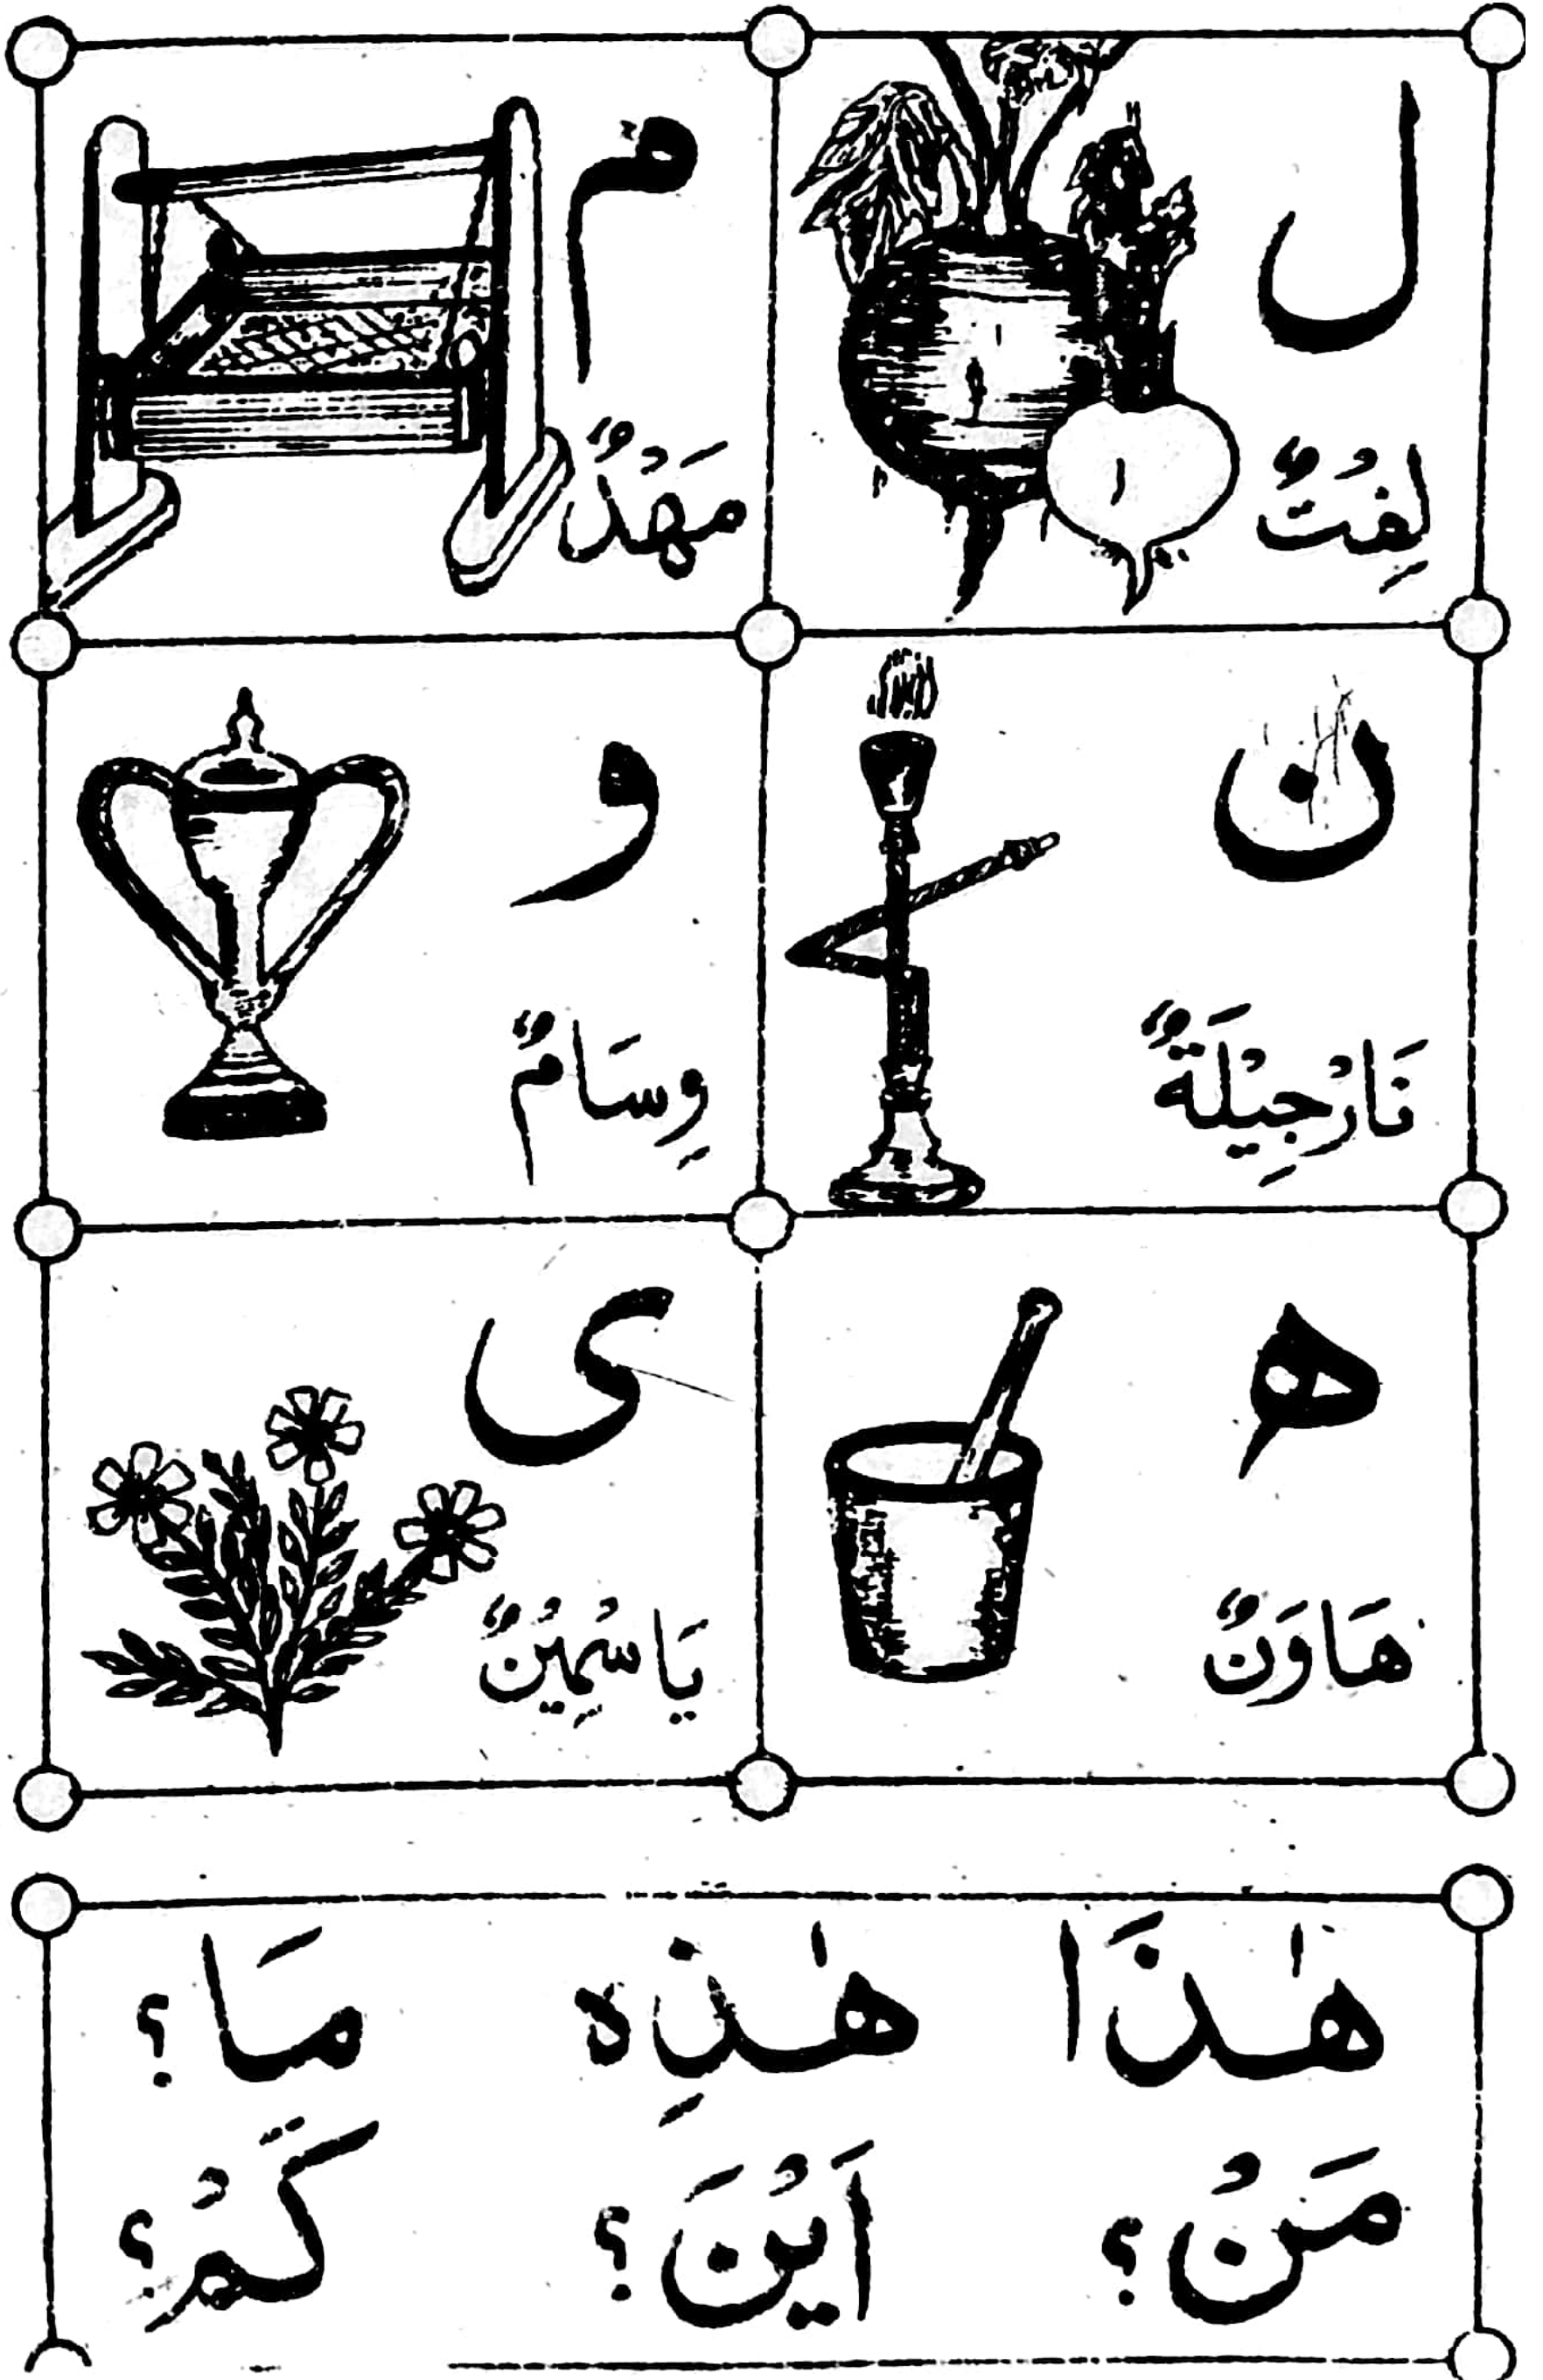 ل
لِفْتٌ
م
مَهْدٌ
ن
نَارْجِيْلَةٌ
و
وِسَامٌ
ه
هَاوَنٌ
ى
يَاسْمِيْنٌ
هٰذَا هٰذِه مَا؟
مَنْ؟ اَيْنَ؟ كَمْ؟